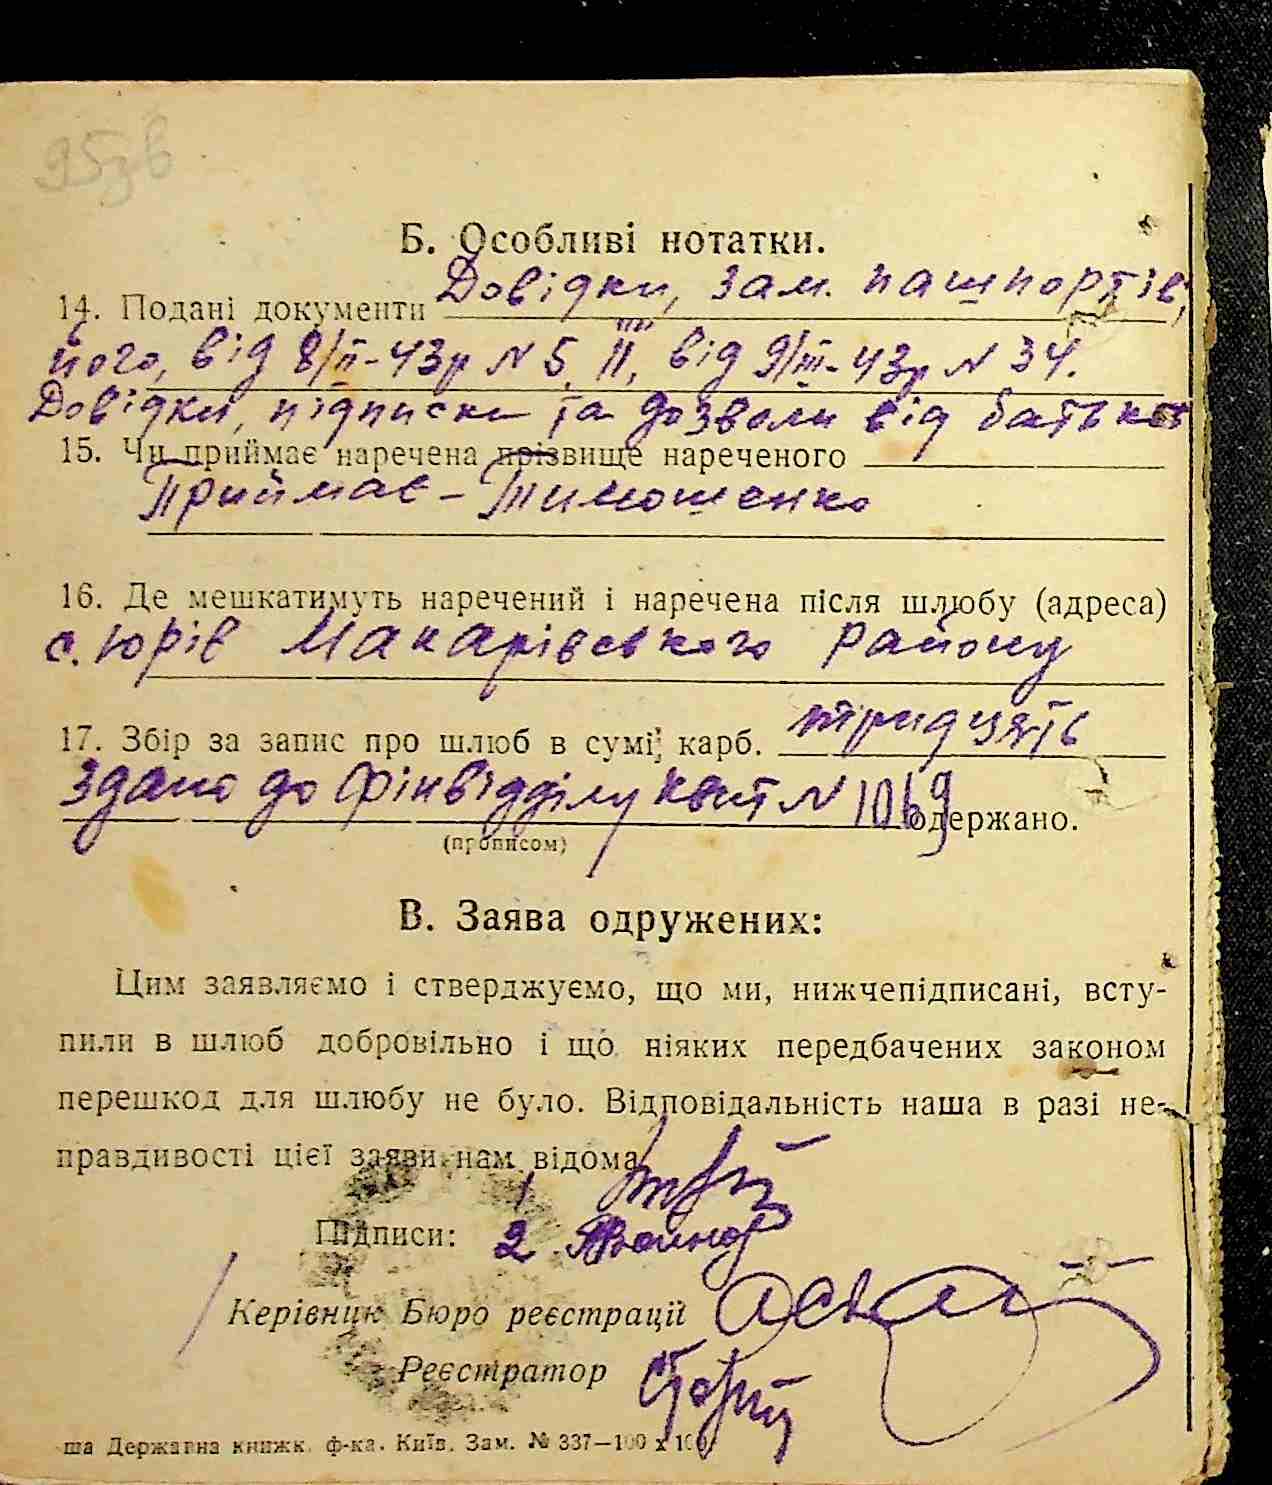 95зв
Б. Особливі нотатки.
14. Подані документи Довідки, зам. пашпортів,
його, від 8/II-43р N 5, її, від 9/III-43р N 34.
Довідки, підписки та дозволи від батьков
15. Чи приймає наречена прізвище нареченого
Приймає – Тимошенко
16. Де мешкатимуть наречений і наречена після шлюбу (адреса)
с. Юрів Макарівського району
17. Збір за запис про шлюб в сумі, карб. тридцять
здано до фінвідділу квит N 1069 одержано.
(прописом)
В. Заява одружених:
Цим заявляємо і стверджуємо, що ми, нижчепідписані, всту-
пили в шлюб добровільно і що ніяких передбачених законом
перешкод для шлюбу не було. Відповідальність наша в разі не-
правдивості цієї заяви нам відома
1
Підписи: 2.
Керівник Бюро реєстрації
Реєстратор
ша Державна книжк. ф-ка. Київ. Зам. № 337—100 х 100